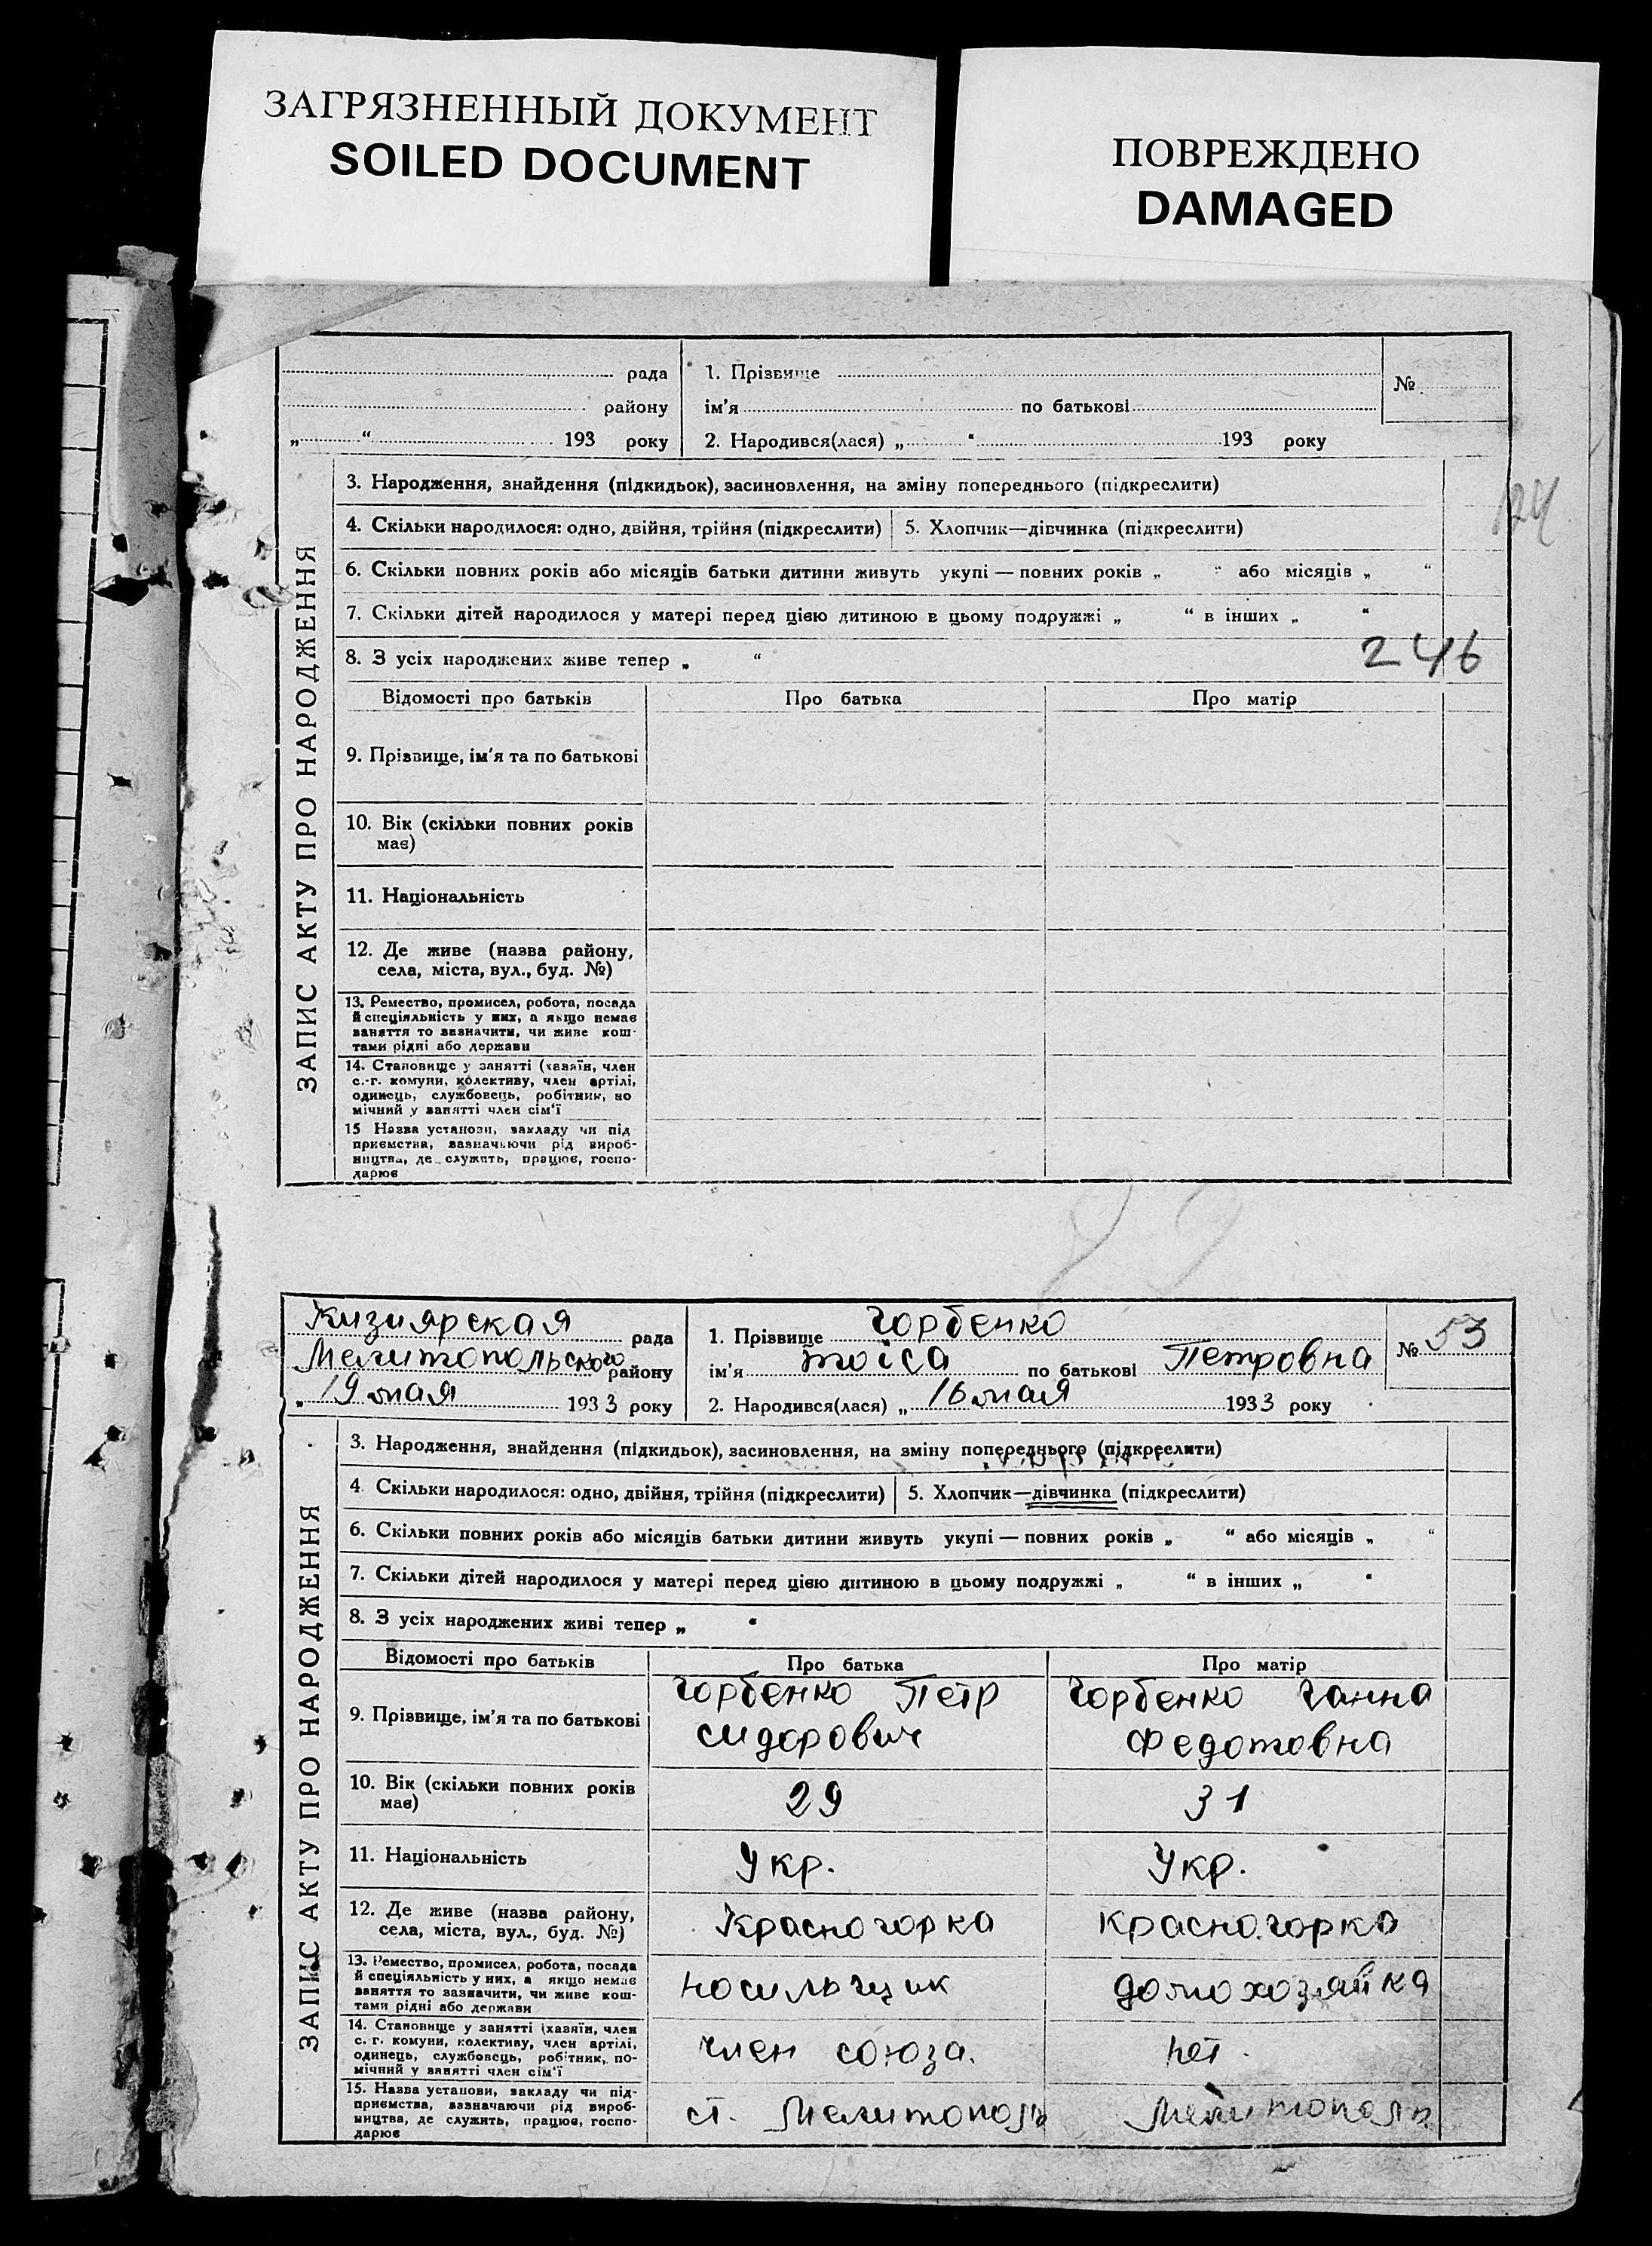 ЗАГРЯЗНЕННЫЙ ДОКУМЕНТ
SOILED DOCUMENT
ПОВРЕЖДЕНО
DAMAGED
рада
району
„ “ 193 року
1. Прізвище
ім'я по батькові
2. Народився(лася) „ “ 193 року
№
ЗАПИС АКТУ ПРО НАРОДЖЕННЯ
3. Народження, знайдення (підкидьок), засиновлення, на зміну попереднього (підкреслити)
24
4. Скільки народилося: одно, двійня, трійня (підкреслити) 5. Хлопчик—дівчинка (підкреслити)
6. Скільки повних років або місяців батьки дитини живуть укупі — повних років „ “ або місяців „ “
7. Скільки дітей народилося у матері перед цією дитиною в цьому подружжі „ “ в інших „ “
8. З усіх народжених живе тепер „ “
246
Відомості про батьків Про батька Про матір
9. Прізвище, ім'я та по батькові
10. Вік (скільки повних років
має)
11. Національність
12. Де живе (назва району,
села, міста, вул., буд. №)
13. Ремество, промисел, робота, посада
й спеціяльність у них, а якщо немає
заняття то зазначити, чи живе кош-
тами рідні або держави
14. Становище у занятті (хазяїн, член
с.-г. комуни, колективу, член артілі,
одинець, службовець, робітник, по
мічний у занятті член сім'ї
15 Назва установи, закладу чи під
приємства, зазначаючи рід вироб-
ництва, де служить, працює, госпо-
дарює
Кизиярская рада
Мелитопольского району
„ 19 мая 1933 року
1. Прізвище Горбенко
ім'я по батькові Петровна
2. Народився(лася) „ 16 мая 1933 року
№ 53
ЗАПИС АКТУ ПРО НАРОДЖЕННЯ
3. Народження, знайдення (підкидьок), засиновлення, на зміну попереднього (підкреслити)
4. Скільки народилося: одно, двійня, трійня (підкреслити) 5. Хлопчик—дівчинка (підкреслити)
6. Скільки повних років або місяців батьки дитини живуть укупі — повних років „ “ або місяців „ “
7. Скільки дітей народилося у матері перед цією дитиною в цьому подружжі „ “ в інших „ “
8. З усіх народжених живі тепер „ “
Відомості про батьків Про батька Про матір
9. Прізвище, ім'я та по батькові
Горбенко Петр
сидорович
Горбенко Ганна
Федотовна
10. Вік (скільки повних років
має)
29
31
11. Національність
Укр.
Укр.
12. Де живе (назва району,
села, міста, вул., буд. №)
Красногорка
Красногорка
13. Ремество, промисел, робота, посада
й спеціяльність у них, а якщо немає
заняття то зазначити, чи живе кош-
тами рідні або держави
носильщик
домохозяйка
14. Становище у занятті (хазяїн, член
с. г. комуни, колективу, член артілі,
одинець, службовець, робітник, по-
мічний у занятті член сім'ї
член союза.
нет.
15. Назва установи, закладу чи під-
приємства, зазначаючи рід вироб-
ництва, де служить, працює, госпо-
дарює
ст. Мелитополь
Мелитополь